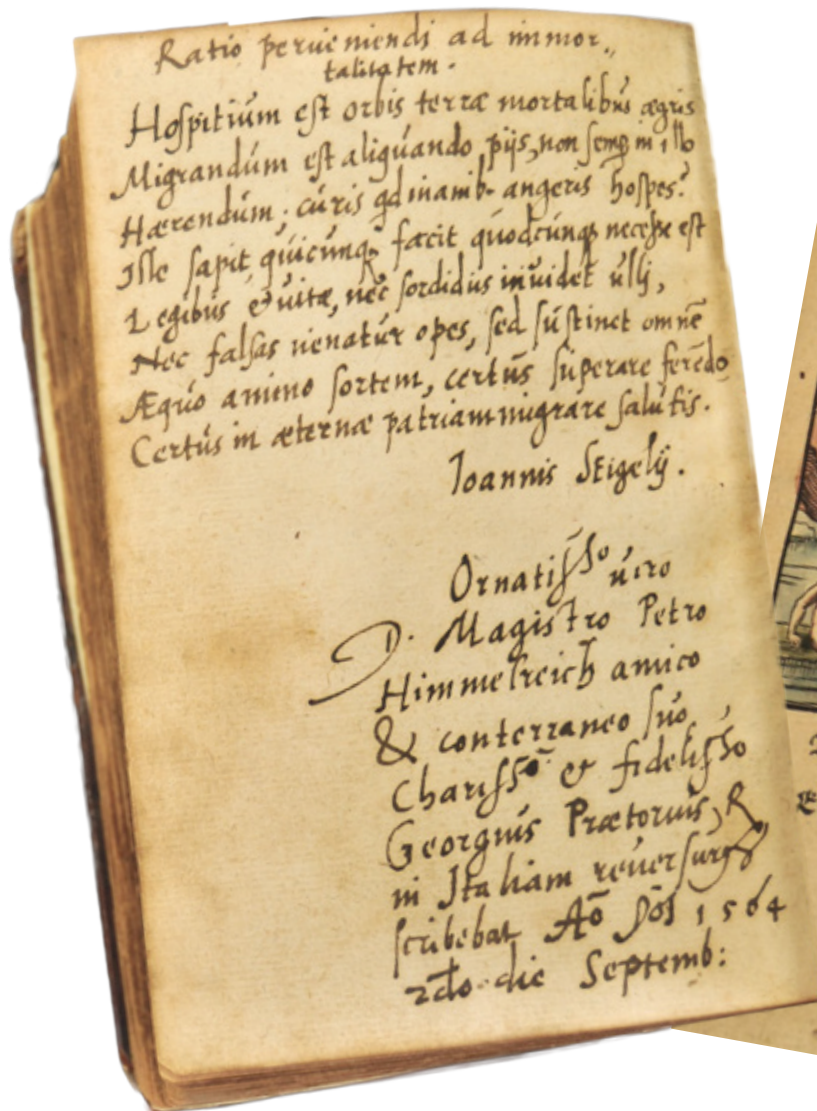 Ratio perueniendi ad immor„
talitatem.
Hoſpitium eſt orbis terræ mortalibus ægris
Migrandum eſt aliquando pijs, non ſemp in illo
Hærendum; curis qd inanib. angeris hoſpes?
Ille ſapit, quicunq; facit quodcunq; neceſse eſt
Legibus & uitæ, nec ſordidus inuidet ulli,
Nec falſas uenatur opes, ſed ſuſtinet omnē
Æquo animo ſortem, certus ſuperare ferēdo
Certus in æternæ patriam migrare ſalutis.
Ioannis Stigelij.
Ornatiſſo uiro
D. Magistro Petro
Himmelreich amico
& conterraneo ſuo
Chariſſo & fideliſſo
Georgius Prætorius, R
in Italiam reuerſurus
ſcribebat Aō Dōi 1564
2do die Septemb: